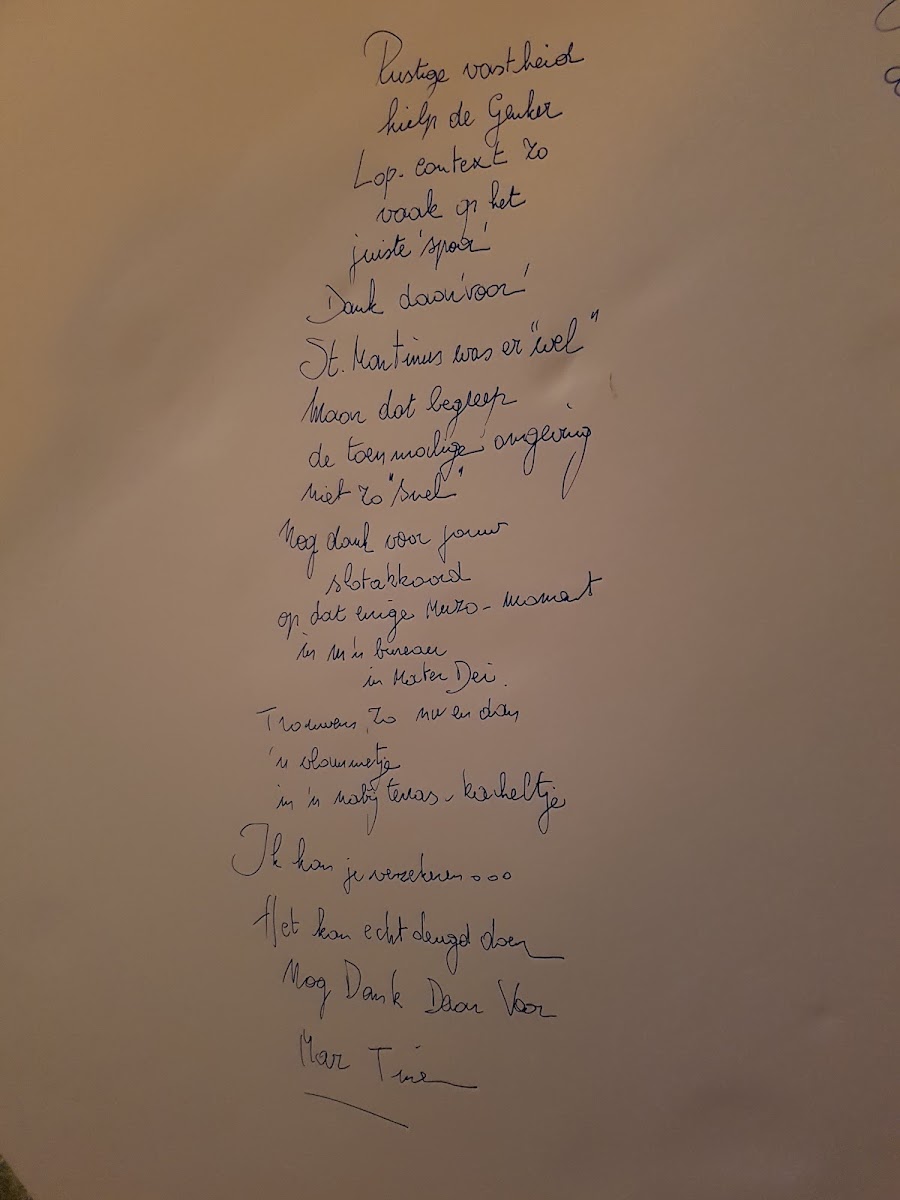 Rustige vastheid
hielp de Genker
Lop-context zo
vaak op het
juiste 'spoor'
Dank daar'voor'
St. Martinus was er "wel"
Maar dat begreep
de toenmalige omgeving
niet zo "snel"
Nog dank voor jouw
slotakkoord
op dat enige Muzo-moment
in m'n bureau
in Mater Dei.
Trouwens, zo nu en dan
'n vlammetje
in 'n nabij terras-kacheltje
Ik kan je verzekeren...
Het kan echt deugd doen
Nog Dank Daar Voor
Mar Tine